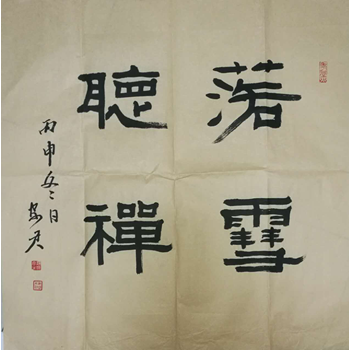 落雪
聽禪
丙申冬日